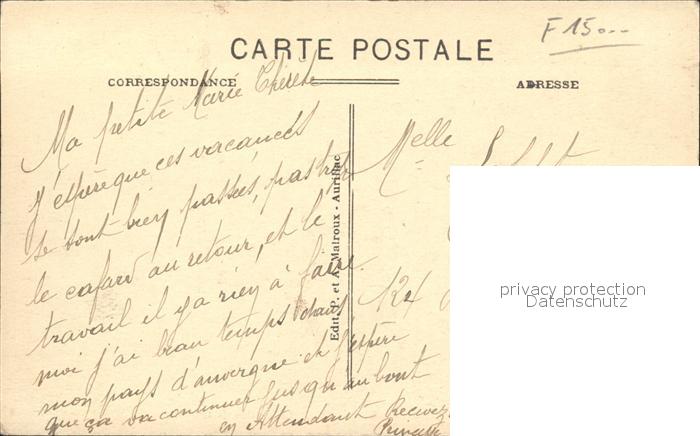 F 15...
CARTE POSTALE
CORRESPONDANCE
ADRESSE
Ma petite Marie Thérèse
J'espère que ces vacances
se sont bien passées, pas trop
le cafard au retour, et le
travail il y a rien à faire.
moi j'ai beau temps dans
mon pays d'auvergne et j'espère
que ça va continuer jusqu'au bout
en Attendant Recevez
Melle
124
Edit. P. et A. Malroux - Aurillac
privacy protection
Datenschutz